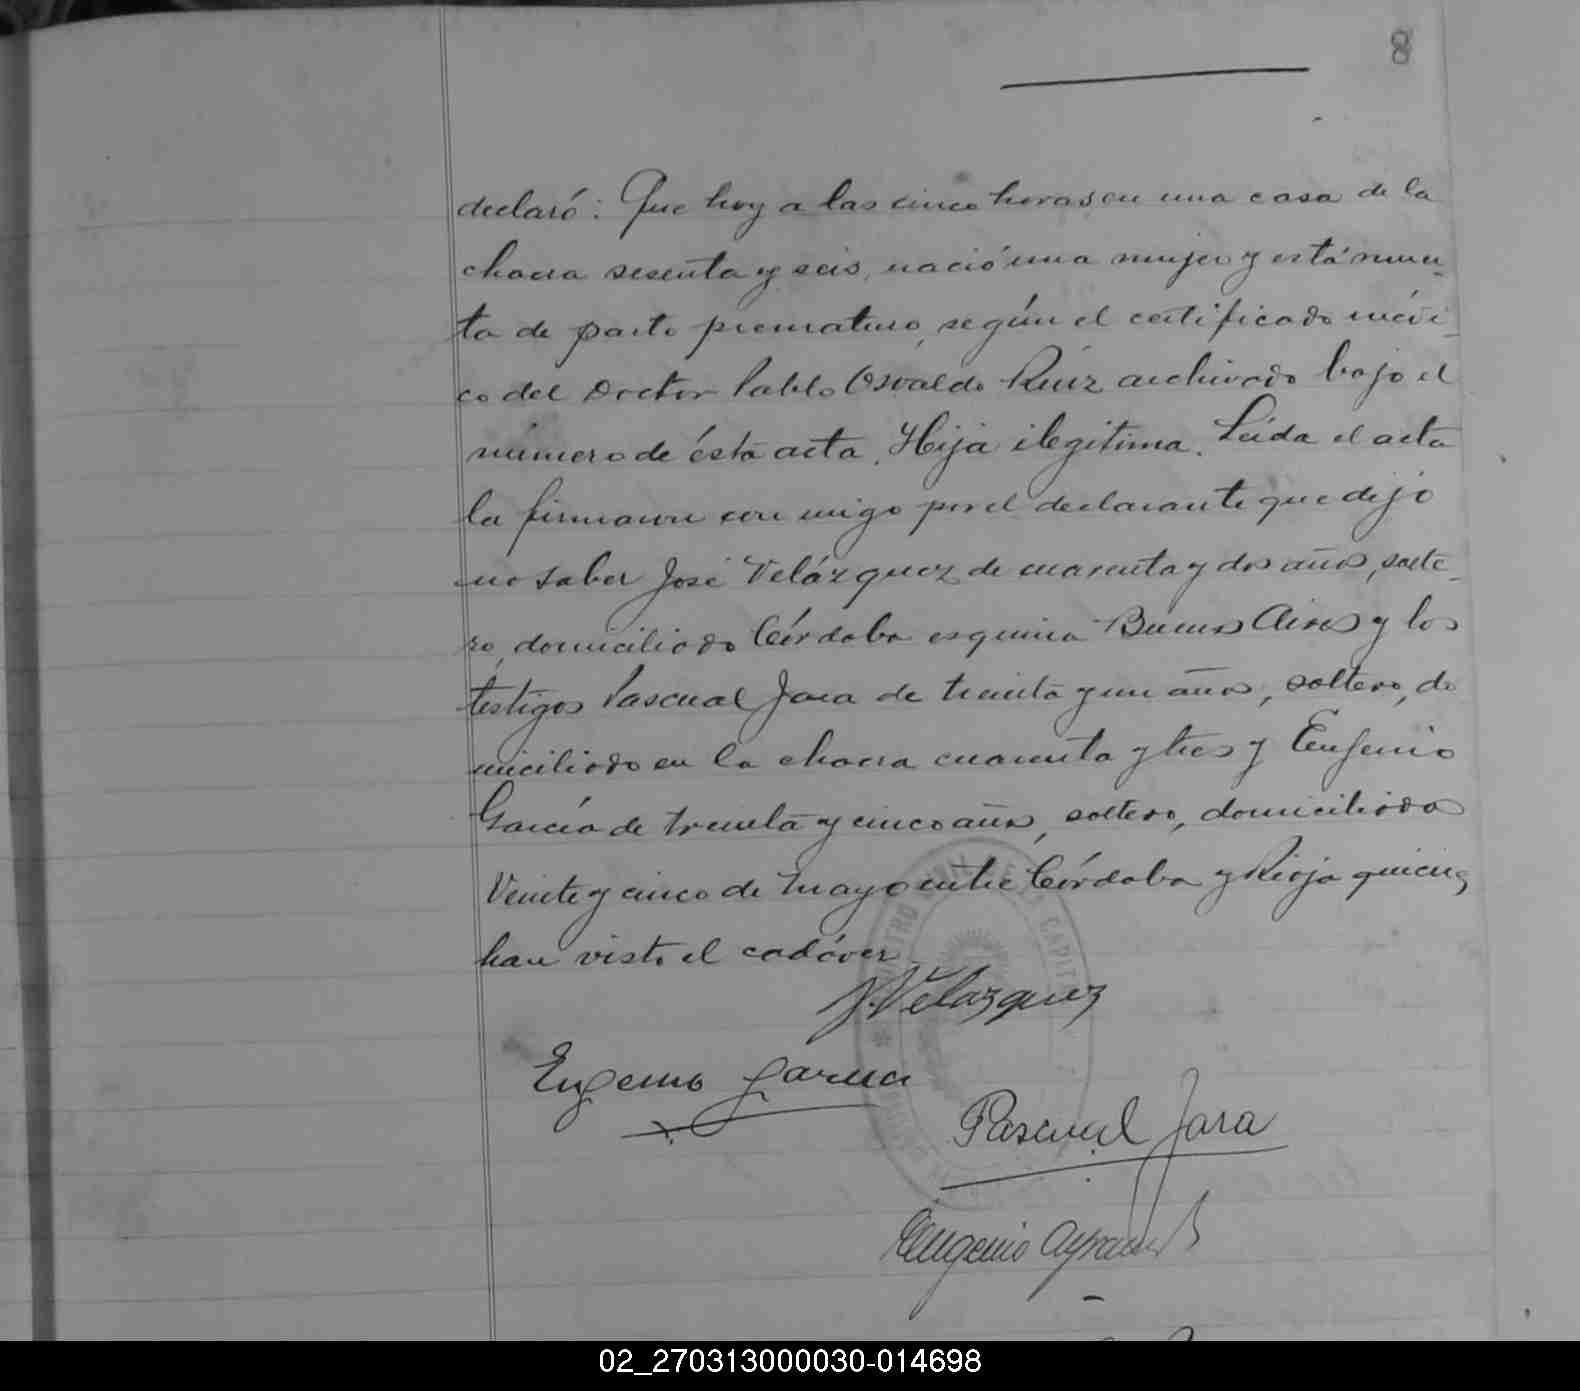 8
declaró: Que hoy a las cinco horas en una casa de la
chacra sesenta y seis, nació una mujer y está muer-
ta de parto prematuro, según el certificado médi-
co del Doctor Pablo Osvaldo Ruiz archivado bajo el
número de ésta acta. Hija ilegitima. Leída el acta
la firmaron con migo por el declarante que dijo
no saber José Velázquez de cuarenta y dos años, solte-
ro, domiciliado Córdoba esquina Buenos Aires y los
testigos Pascual Jara de treinta y un años, soltero, do
miciliado en la chacra cuarenta y tres y Eugenio
García de treinta y cinco años, soltero, domiciliado
Veinte y cinco de Mayo entre Córdoba y Rioja quienes
han visto el cadáver.
J. Velazquez
Eugenio Garcia
Pascual Jara
Eugenio
02_270313000030-014698